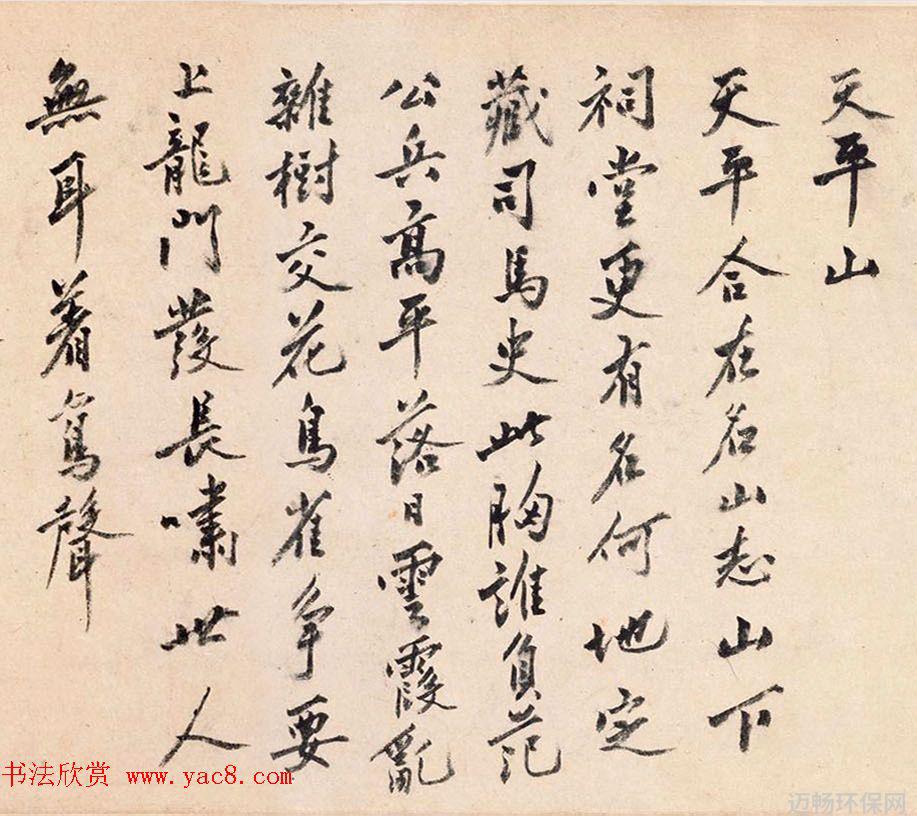 天平山
天平合在名山志山下
祠堂更有名何地定
藏司馬史此胸誰負范
公兵高平落日雲霞亂
雜樹交花鳥雀爭要
上龍門發長嘯世人
無耳着鸞聲
书法欣赏 www.yac8.com
迈畅环保网